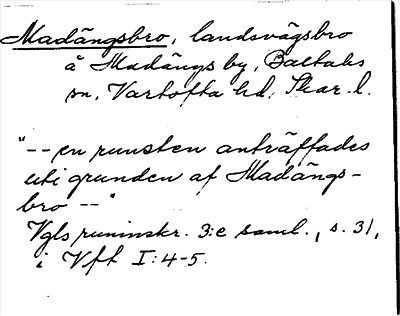 Madängsbro, landsvägsbro
å Madängs by, Baltaks
sn, Vartofta hd, Skar. l.
"-- en runsten anträffades
uti grunden af Madängs-
bro --"
Vgls runinskr. 3:e saml., s. 31,
i Vft I:4-5.